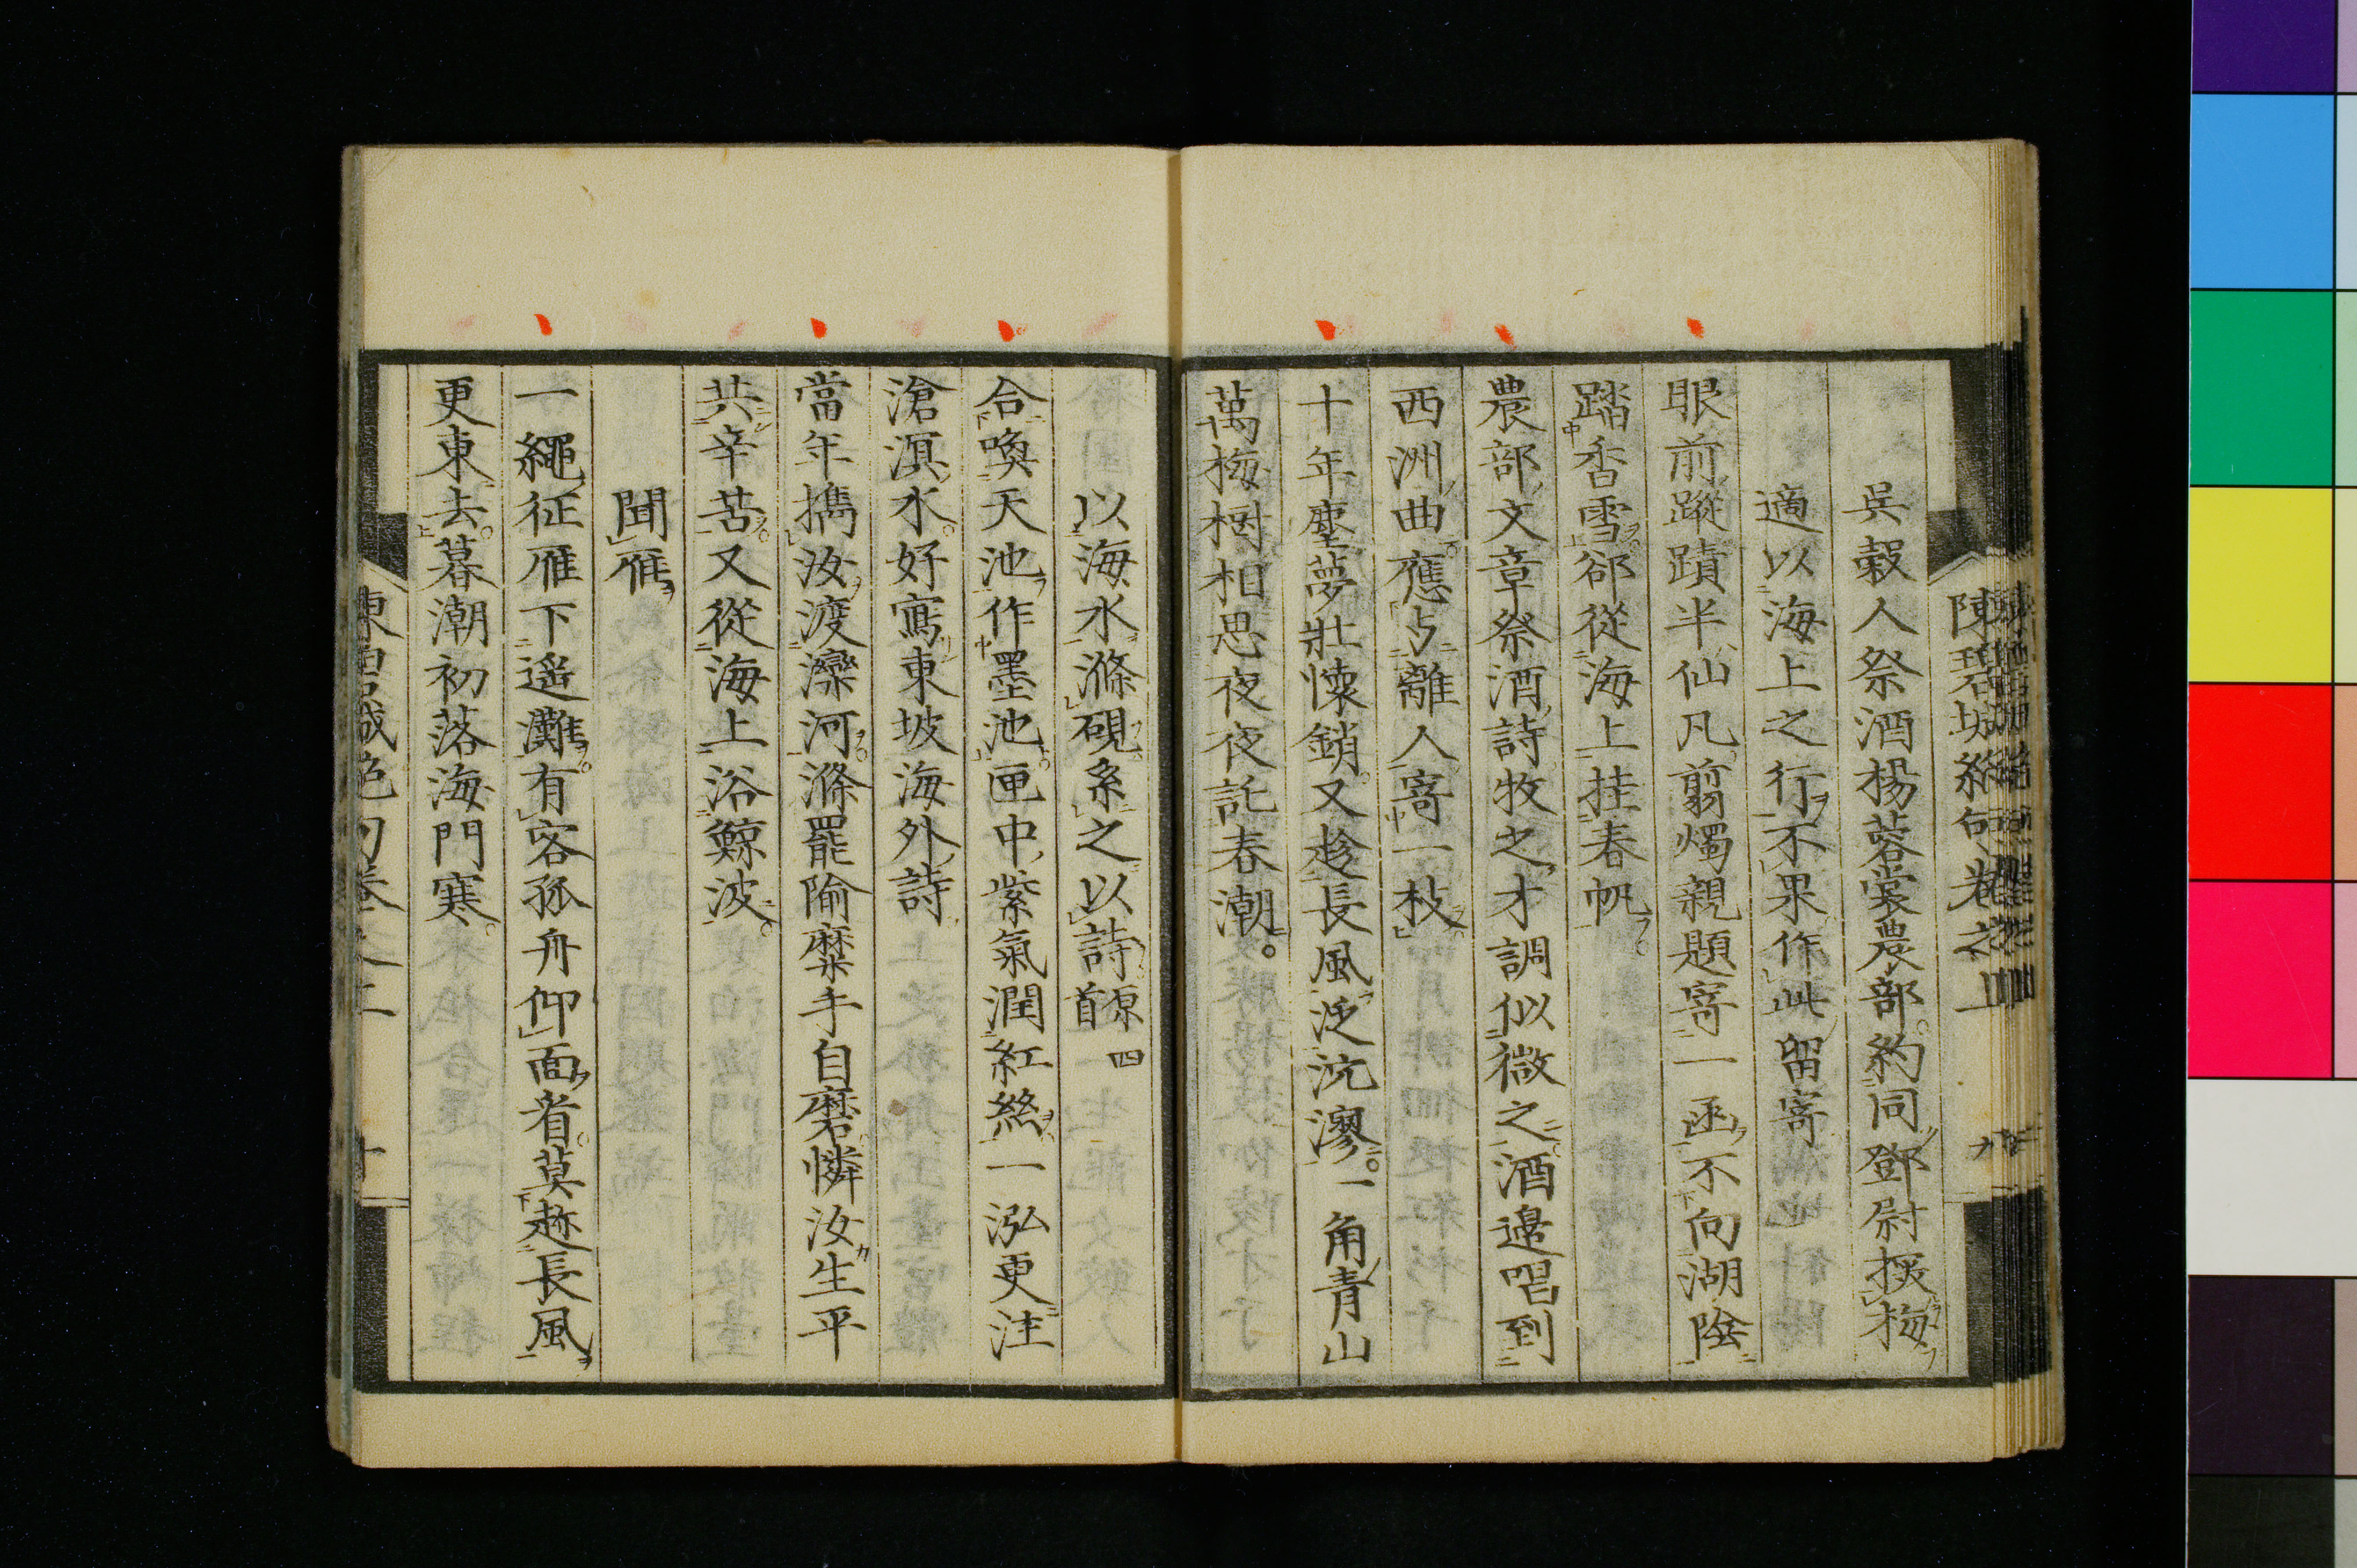 陳碧城絶句卷之上
吳穀人祭酒楊蓉裳農部約同鄧尉探梅
適以海上之行不果作此留寄
眼前蹤蹟半仙凡翦燭親題寄一函不向湖陰
踏香雪郤從海上挂春帆
農部文章祭酒詩牧之才調似微之酒邊唱到
西洲曲應与離人寄一枝
十年塵夢壯懷銷又趁長風泛泬漻一角青山
萬梅樹相思夜夜託春潮
以海水滌硯系之以詩原四首
合喚天池作墨池匣中紫氣潤紅絲一泓更注
滄溟水好寫東坡海外詩
當年攜汝渡灤河滌罷隃糜手自磨憐汝生平
共辛苦又從海上浴鯨波
聞雁
一繩征雁下遥灘有客孤舟仰面看莫趁長風
更東去暮潮初落海門寒